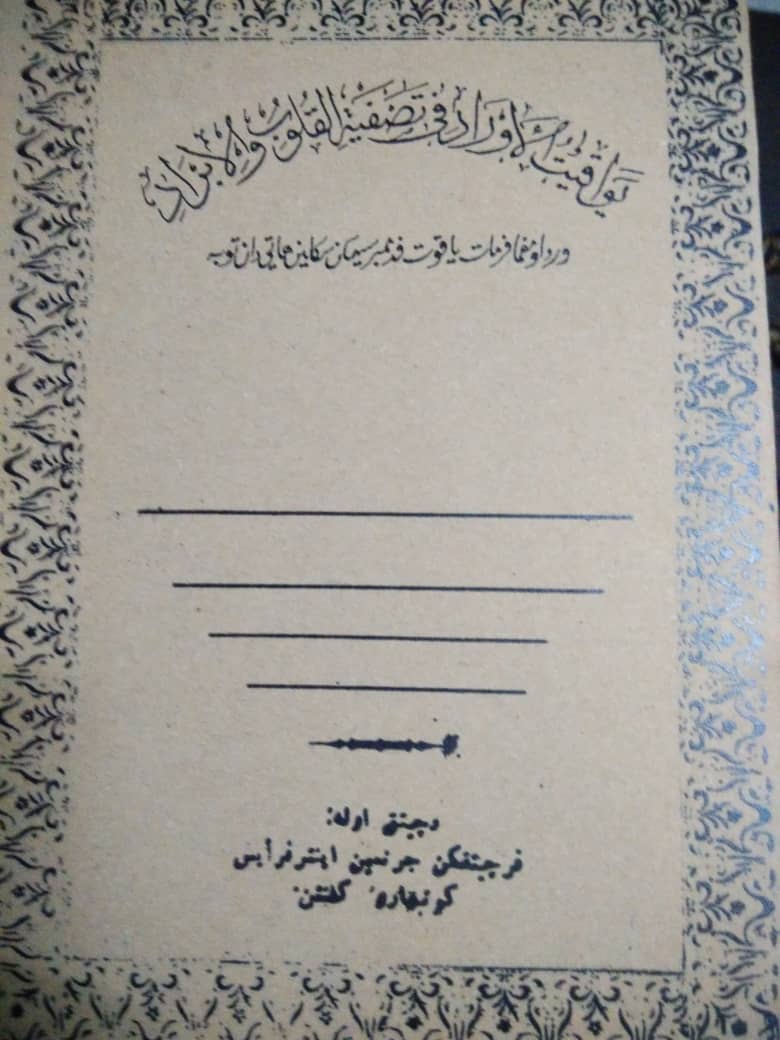 يَوَاقِيْتُ الْاَوْرَادِ فِى تَصْفِيَةِ الْقُلُوْبِ وَالْاَبْرَادِ
ورد اومفما فرمات ياقوت فد ممبرسيهكن سكاين هاتي دان توبه
دچيتق اوله:
فرچيتقكن جرنيهن اينترفرايس
كوتبهارو٬ كلنتن